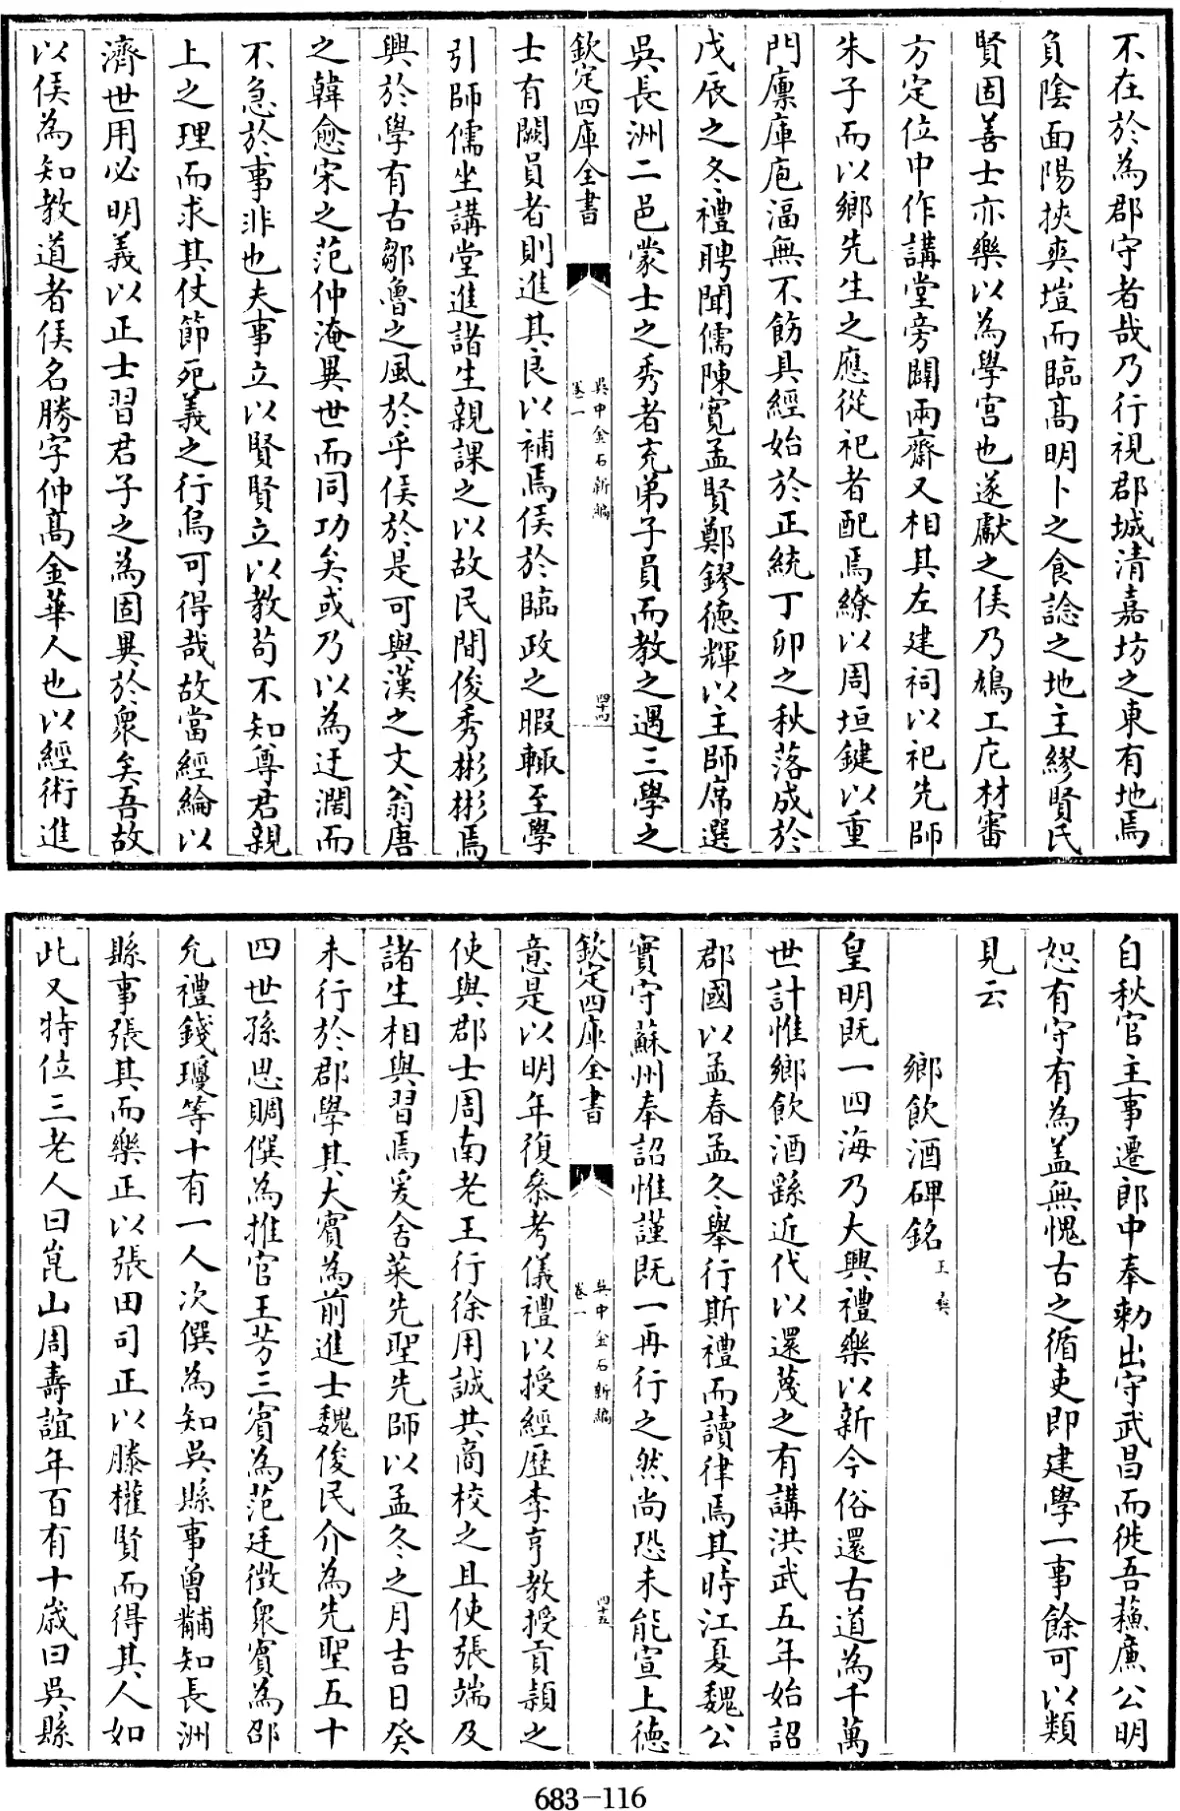 不在於為郡守者哉乃行視郡城清嘉坊之東有地焉
負陰面陽挾爽塏而臨高明卜之食諗之地主繆賢民
賢固善士亦樂以為學宮也遂獻之侯乃鳩工庀材審
方定位中作講堂旁闢兩齋又相其左建祠以祀先師
朱子而以鄉先生之應從祀者配焉繚以周垣鍵以重
門廪庫庖湢無不飭具經始於正統丁卯之秋落成於
戊辰之冬禮聘聞儒陳寛孟賢鄭鏐德輝以主師席選
吳長洲二邑蒙士之秀者充弟子員而教之遇二學之
欽定四庫全書
吳中金石新編
卷一
四十四
士有闕員者則進其良以補焉侯於臨政之暇輙至學
引師儒坐講堂進諸生親課之以故民間俊秀彬彬焉
興於學有古鄒魯之風於乎侯於是可與漢之文翁唐
之韓愈宋之范仲淹異世而同功矣或乃以為迂濶而
不急於事非也夫事立以賢賢立以教茍不知尊君親
上之理而求其仗節死義之行烏可得哉故當經綸以
濟世用必明義以正士習君子之為固異於衆矣吾故
以侯為知教道者侯名勝字仲髙金華人也以經術進
自秋官主事遷郎中奉勅出守武昌而徙吾蘇廉公明
恕有守有為盖無愧古之循吏即建學一事餘可以類
見云
鄉飲酒碑銘
王彛
皇明既一四海乃大興禮樂以新今俗還古道為千萬
世計惟鄉飲酒繇近代以還蔑之有講洪武五年始詔
郡國以孟春孟冬舉行斯禮而讀律焉其時江夏魏公
實守蘇州奉詔惟謹既一再行之然尚恐未能宣上德
欽定四庫全書
吳中金石新編
卷一
四十五
意是以明年復叅考儀禮以授經歷李亨教授貢頴之
使與郡士周南老王行徐用誠共商校之且使張端及
諸生相與習焉爰舍菜先聖先師以孟冬之月吉日癸
未行於郡學其大賓為前進士魏俊民介為先聖五十
四世孫思賙僎為推官王芳三賓為范廷徴衆賓為邵
允禮錢瓊等十有一人次僎為知吳縣事曾黼知長洲
縣事張其而樂正以張田司正以滕權賢而得其人如
此又特位三老人曰崑山周壽誼年百有十歲曰吳縣
683-116